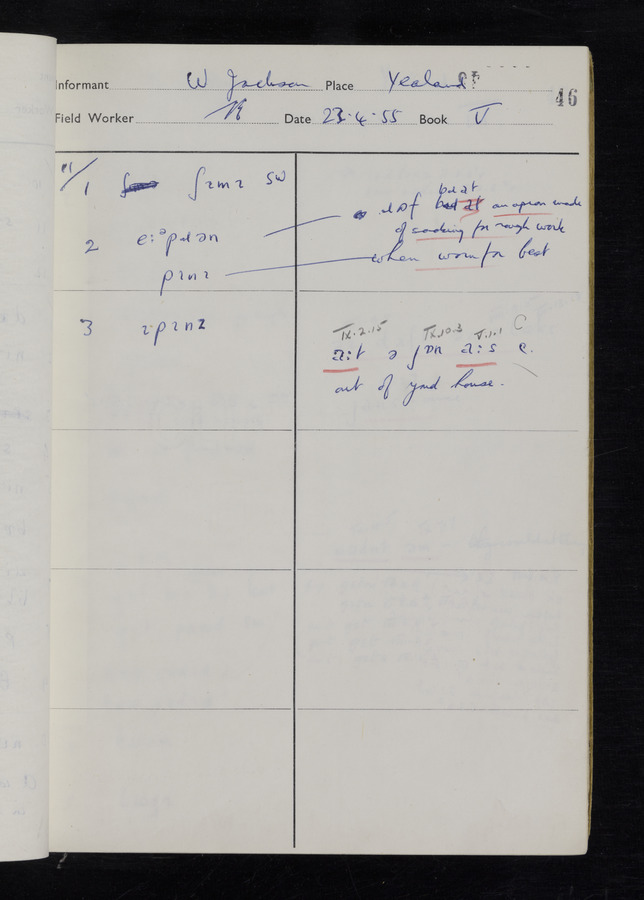 Informant W Jackson Place Yealand
46
Field Worker Date 23.4.55 Book V
11/
1 ʃɪmɪ SW
2 e:ᵊpɹən
pɪnɪ
an apron made
of sacking for rough work
when worn for best
3 ɪpɪnz
IX.2.15 IX.10.3 V.1.1 C
a:t ə jɒn a:s e.
out of yond house.